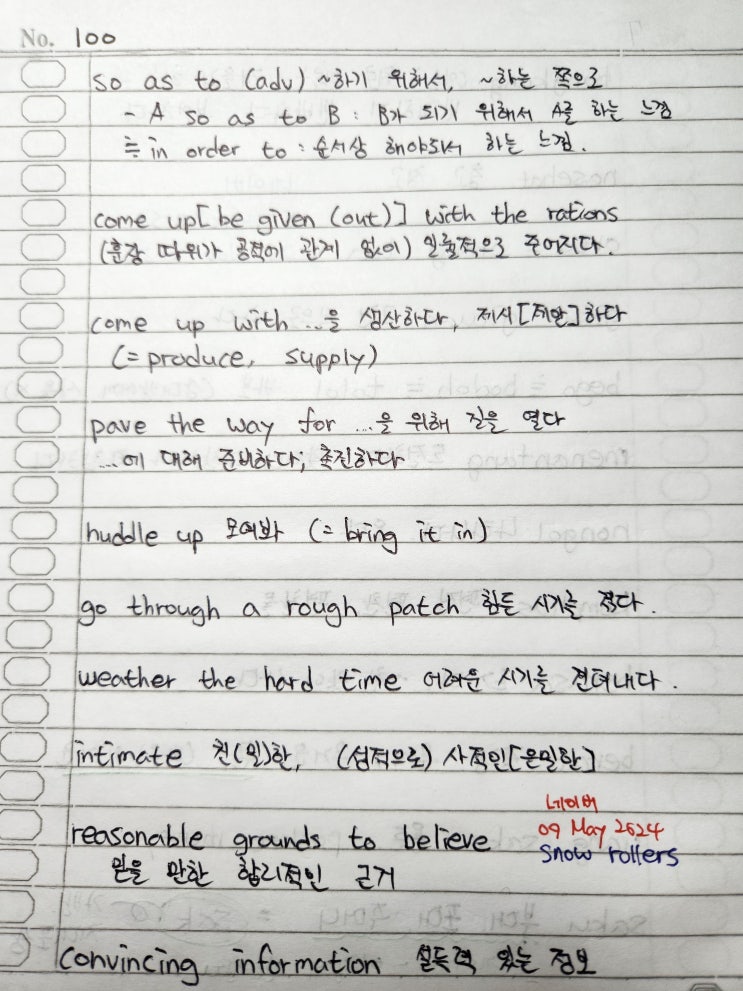 No. 100
so as to (adv) ~하기 위해서, ~하는 쪽으로
- A so as to B : B가 되기 위해서 A를 하는 느낌
≒ in order to : 순서상 해야되서 하는 느낌.
come up[be given (out)] with the rations
(훈장 따위가 공적에 관계 없이) 일률적으로 주어지다.
come up with ...을 생산하다, 제시[제안]하다
(= produce, supply)
pave the way for ...을 위해 길을 열다
...에 대해 준비하다; 촉진하다
huddle up 모여봐 (= bring it in)
go through a rough patch 힘든 시기를 겪다.
weather the hard time 어려운 시기를 견뎌내다.
intimate 친(밀)한, (성적으로) 사적인[은밀한]
네이버
reasonable grounds to believe 09 May 2024
snow rollers
믿을 만한 합리적인 근거
convincing information 설득력 있는 정보